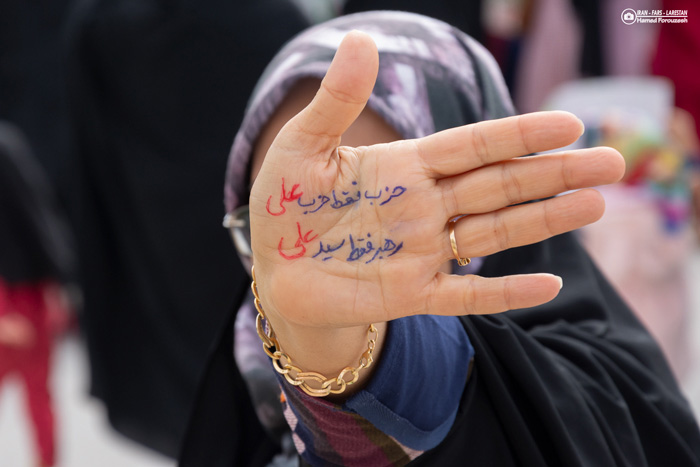 IRAN - FARS - LARESTAN
Hamed Forouzesh
حزب فقط حزب علی
رهبر فقط سید علی